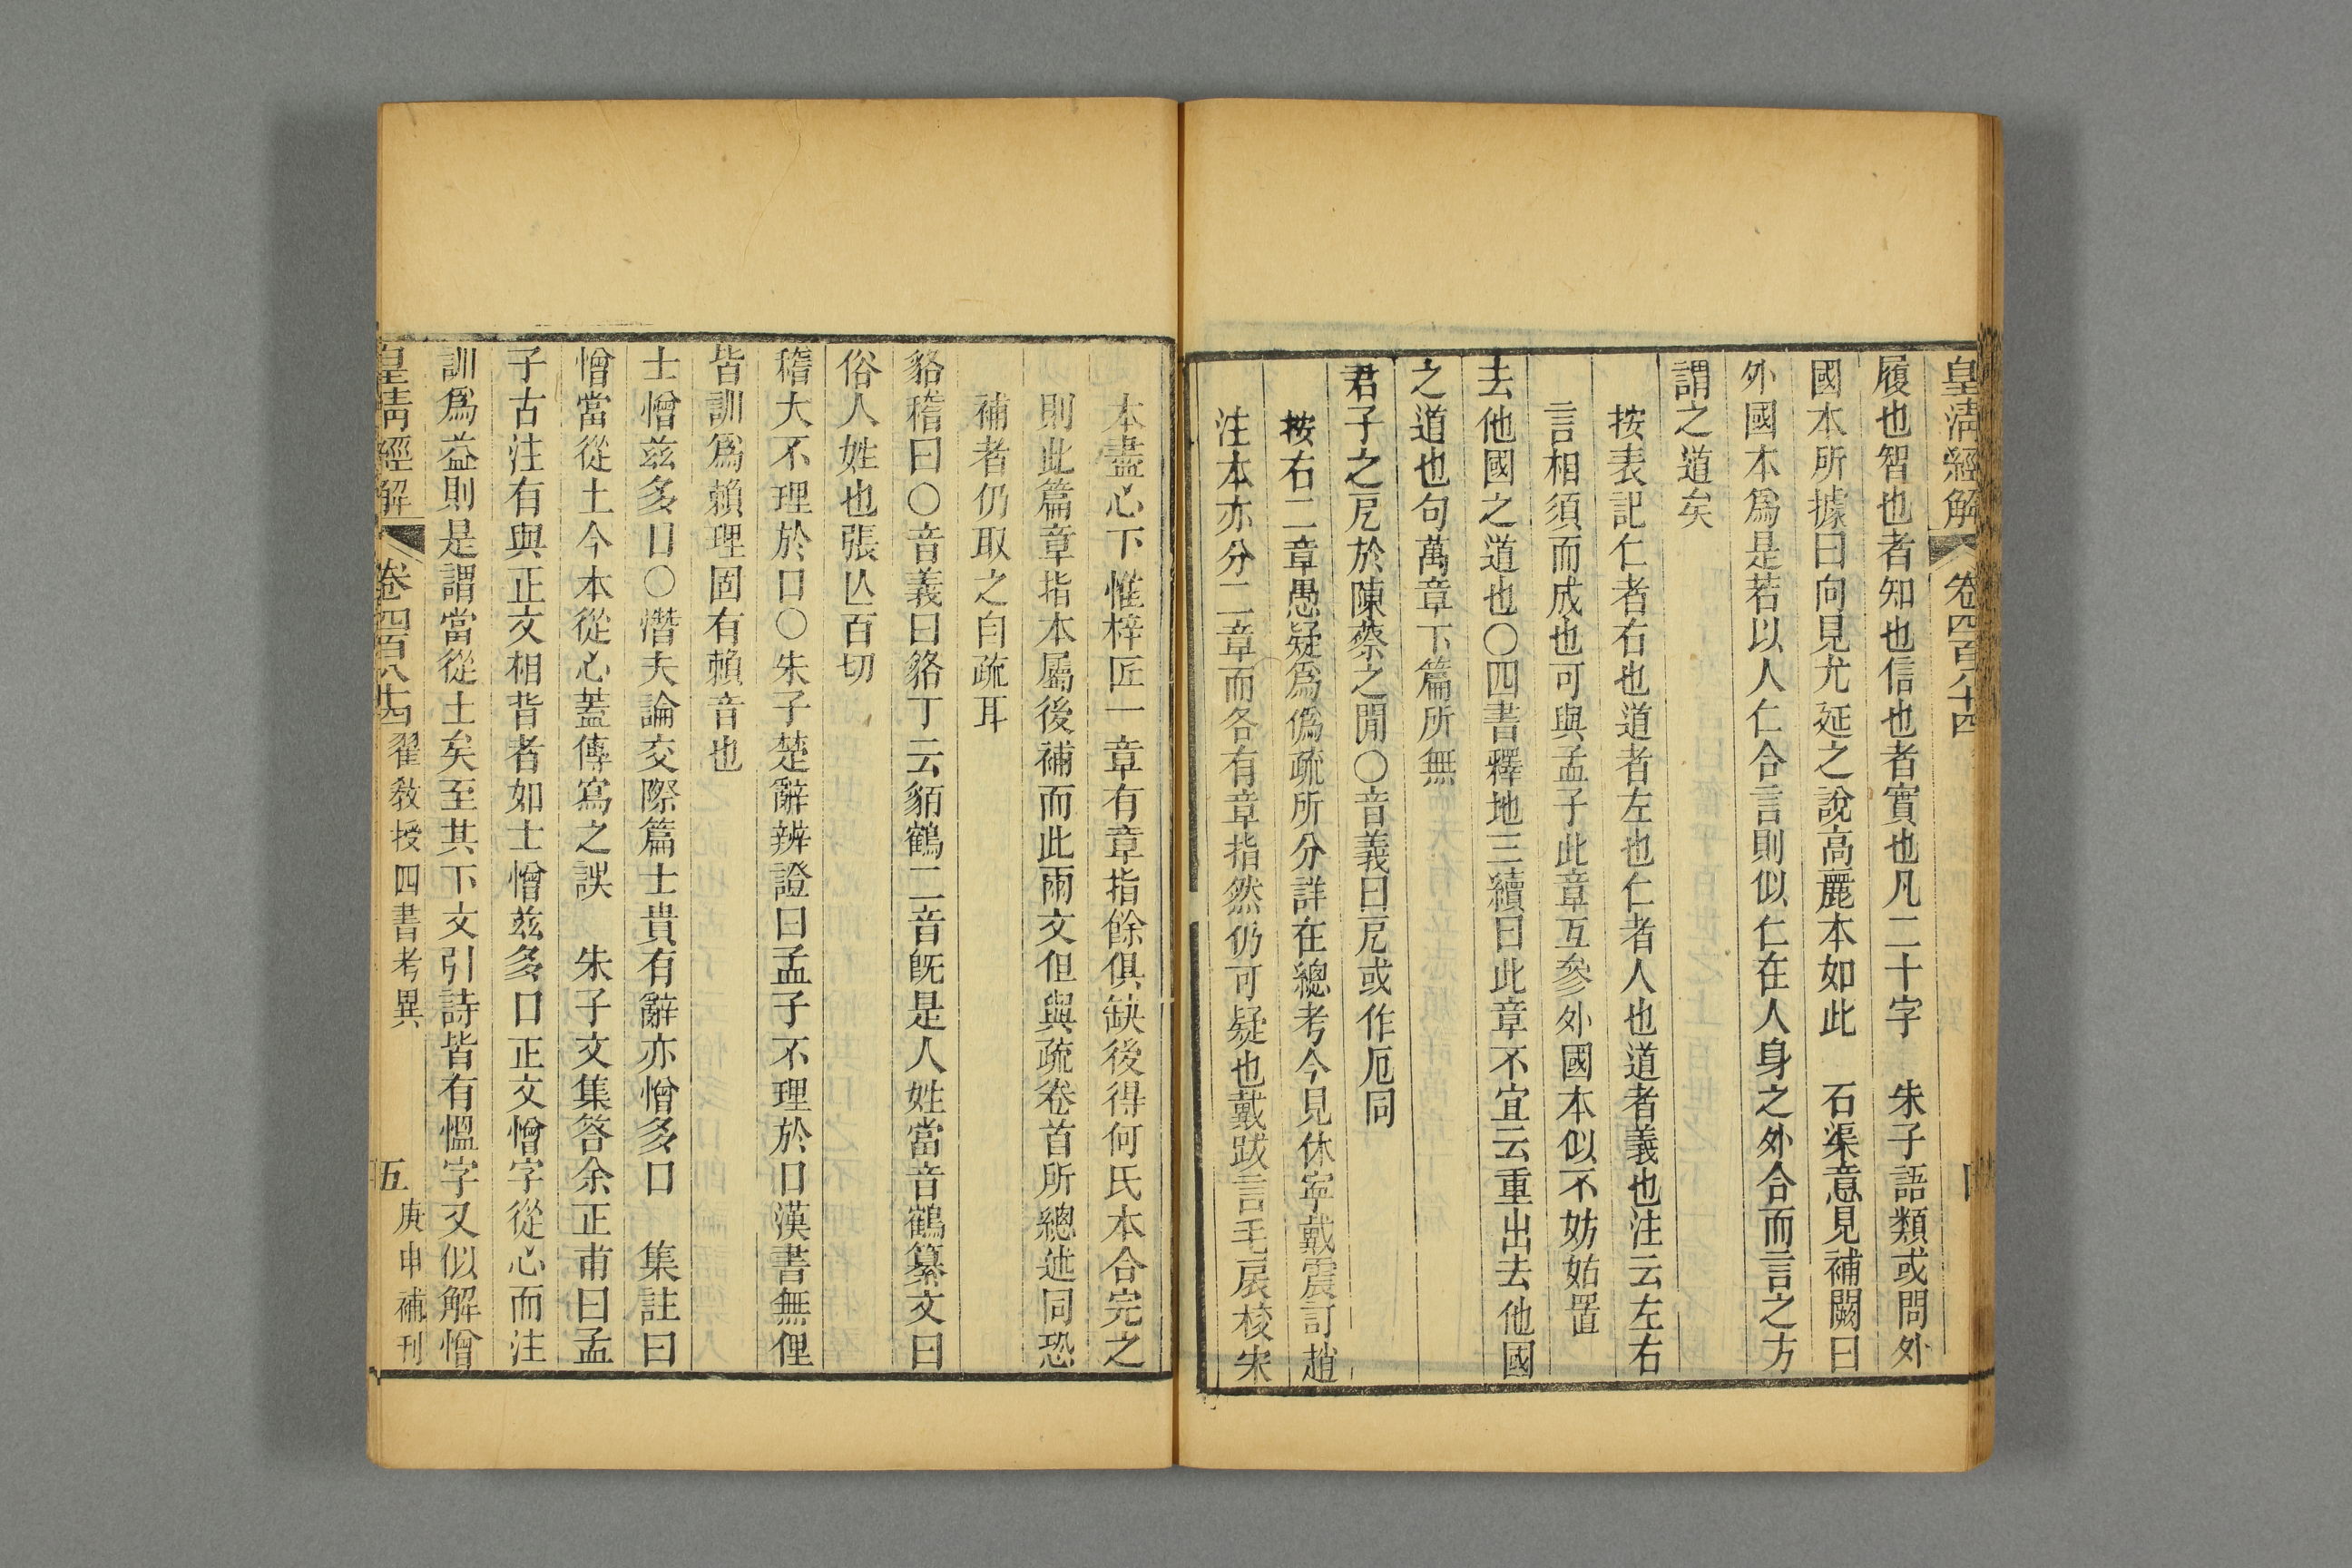 皇清經解 卷四百八十四 四
履也智也者知也信也者實也凡二十字 朱子語類或問外
國本所據曰向見尤延之說高麗本如此 石渠意見補闕曰
外國本爲是若以人仁合言則似仁在人身之外合而言之方
謂之道矣
按表記仁者右也道者左也仁者人也道者義也注云左右
言相須而成也可與孟子此章互參外國本似不妨姑置
去他國之道也〇四書釋地三續曰此章不宜云重出去他國
之道也句萬章下篇所無
君子之戹於陳蔡之閒〇音義曰戹或作厄同
按右二章愚疑爲僞疏所分詳在總考今見休寧戴震訂趙
注本亦分二章而各有章指然仍可疑也戴跋言毛扆校宋
本盡心下惟梓匠一章有章指餘俱缺後得何氏本合完之
則此篇章指本屬後補而此兩文但與疏卷首所總述同恐
補者仍取之自疏耳
貉稽曰〇音義曰貉丁云貊鶴二音旣是人姓當音鶴纂文曰
俗人姓也張亾百切
稽大不理於口〇朱子楚辭辨證曰孟子不理於口漢書無俚
皆訓爲賴理固有賴音也
士憎兹多口〇潛夫論交際篇士貴有辭亦憎多口 集註曰
憎當從土今本從心蓋傳寫之誤 朱子文集答余正甫曰孟
子古注有與正文相背者如士憎兹多口正文憎字從心而注
訓爲益則是謂當從土矣至其下文引詩皆有慍字又似解憎
皇清經解 卷四百八十四 翟敎授四書考異 五 庚申補刊